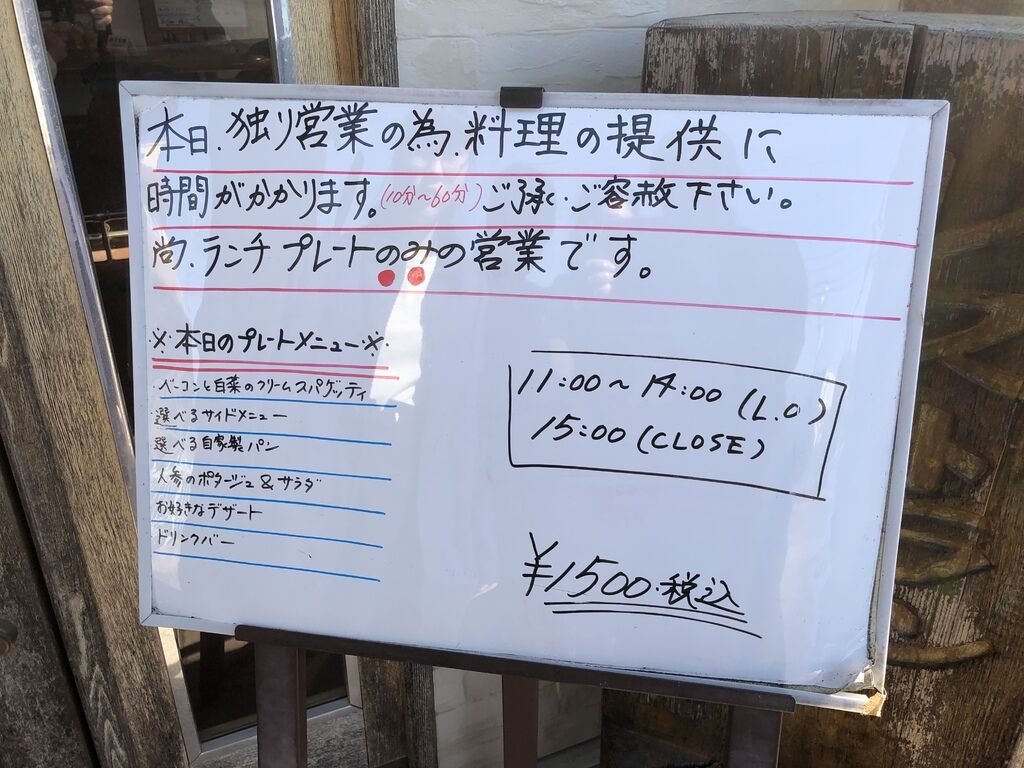 本日、独り営業の為、料理の提供に
時間がかかります。(10分～60分)ご了承、ご容赦下さい。
尚、ランチプレートのみの営業です。
※本日のプレートメニュー※
・ベーコンと白菜のクリームスパゲッティ
選べるサイドメニュー
選べる自家製パン
人参のポタージュ&サラダ
お好きなデザート
ドリンクバー
11:00～14:00(L.O)
15:00(CLOSE)
¥1500・税込